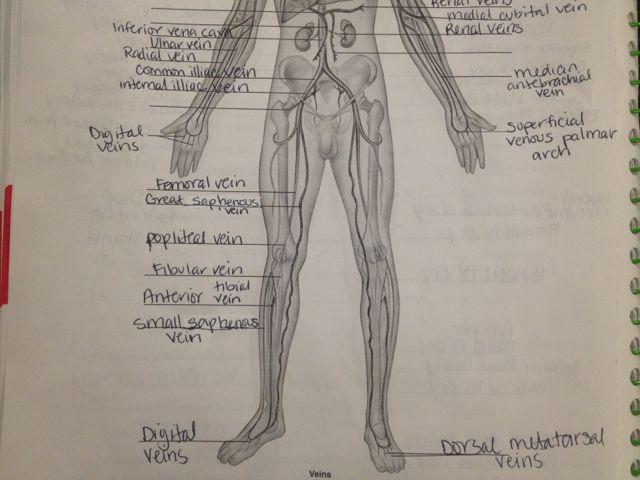 Renal veins
medial cubital vein
Inferior vena cava
Renal veins
Ulnar vein
Radial vein
Common illiac vein
internal illiac vein
median
antebrachial
vein
Digital
veins
superficial
venous palmar
arch
Femoral vein
Great saphenous
vein
popliteal vein
Fibular vein
Anterior tibial
vein
small saphenous
vein
Digital
veins
Dorsal metatarsal
veins
Veins